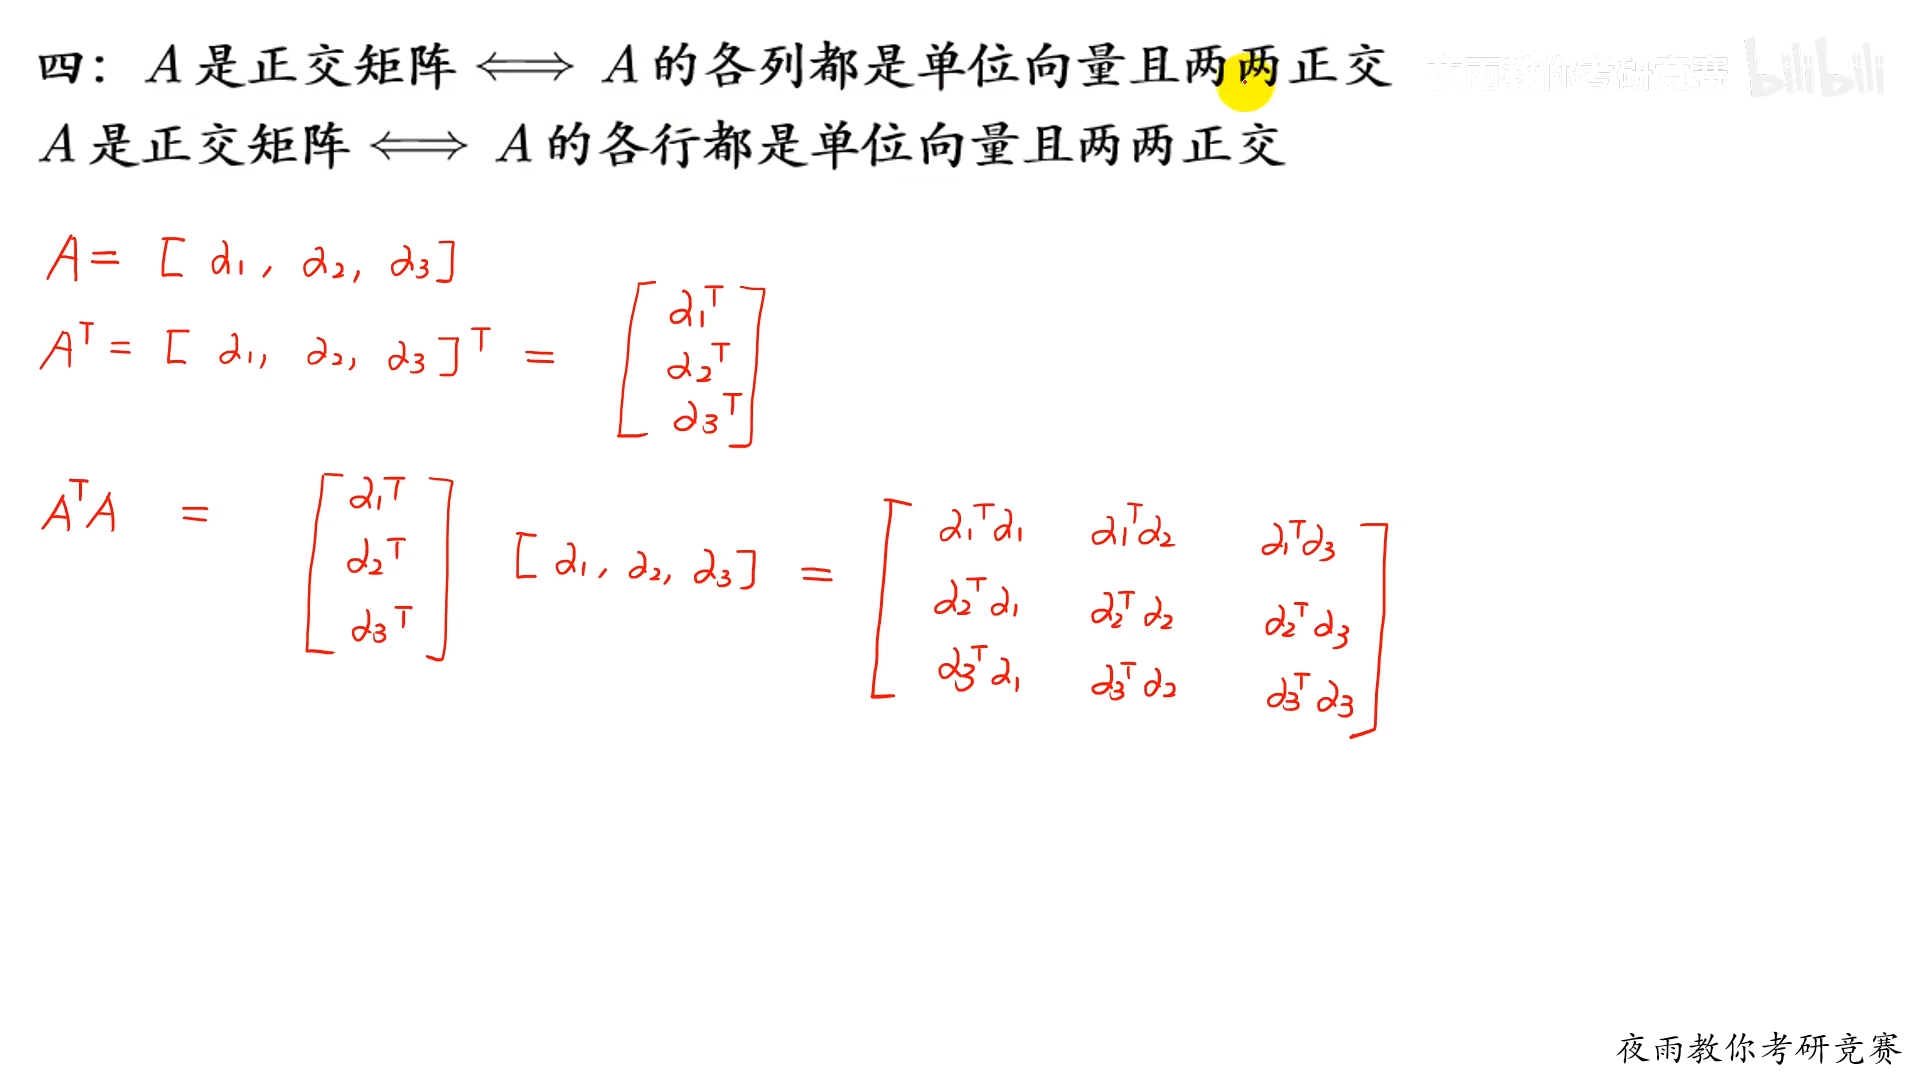 四：A 是正交矩阵 ⟺ A 的各列都是单位向量且两两正交
夜雨教你考研竞赛 bilibili
A 是正交矩阵 ⟺ A 的各行都是单位向量且两两正交
A = [ α₁ , α₂, α₃ ]
Aᵀ = [ α₁, α₂, α₃ ]ᵀ = [ α₁ᵀ
α₂ᵀ
α₃ᵀ ]
AᵀA = [ α₁ᵀ
α₂ᵀ
α₃ᵀ ] [ α₁ , α₂, α₃ ] = [ α₁ᵀα₁ α₁ᵀα₂ α₁ᵀα₃
α₂ᵀα₁ α₂ᵀα₂ α₂ᵀα₃
α₃ᵀα₁ α₃ᵀα₂ α₃ᵀα₃ ]
夜雨教你考研竞赛